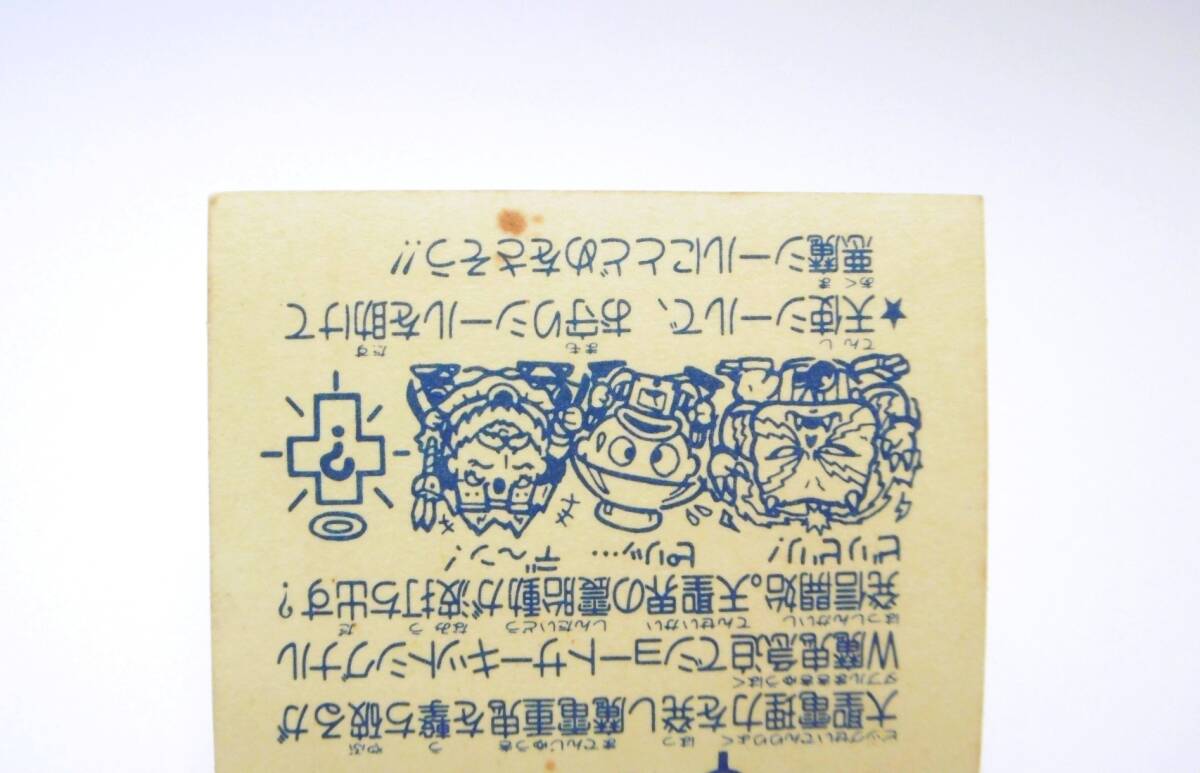 大聖電理力を発し魔電重鬼を撃ち破るが
W魔鬼急迫でショートサーキットシグナル
発信開始。天聖界の震胎動が波打ち出す?
ビリビリ! ピリッ… デ〜ン!
?
★天使シールで、お守りシールを助けて
悪魔シールにとどめをさそう!!